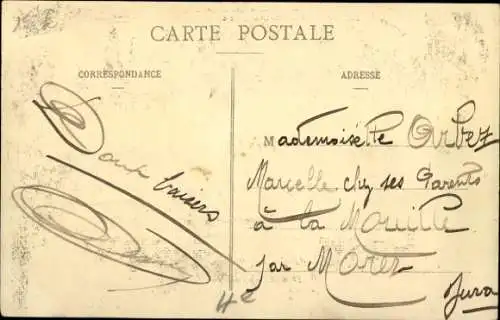 CARTE POSTALE
CORRESPONDANCE
ADRESSE
Doux baisers
Mademoiselle Arbez
Marcelle, chez ses Parents
à la Mouille
par Morez
Jura
4e